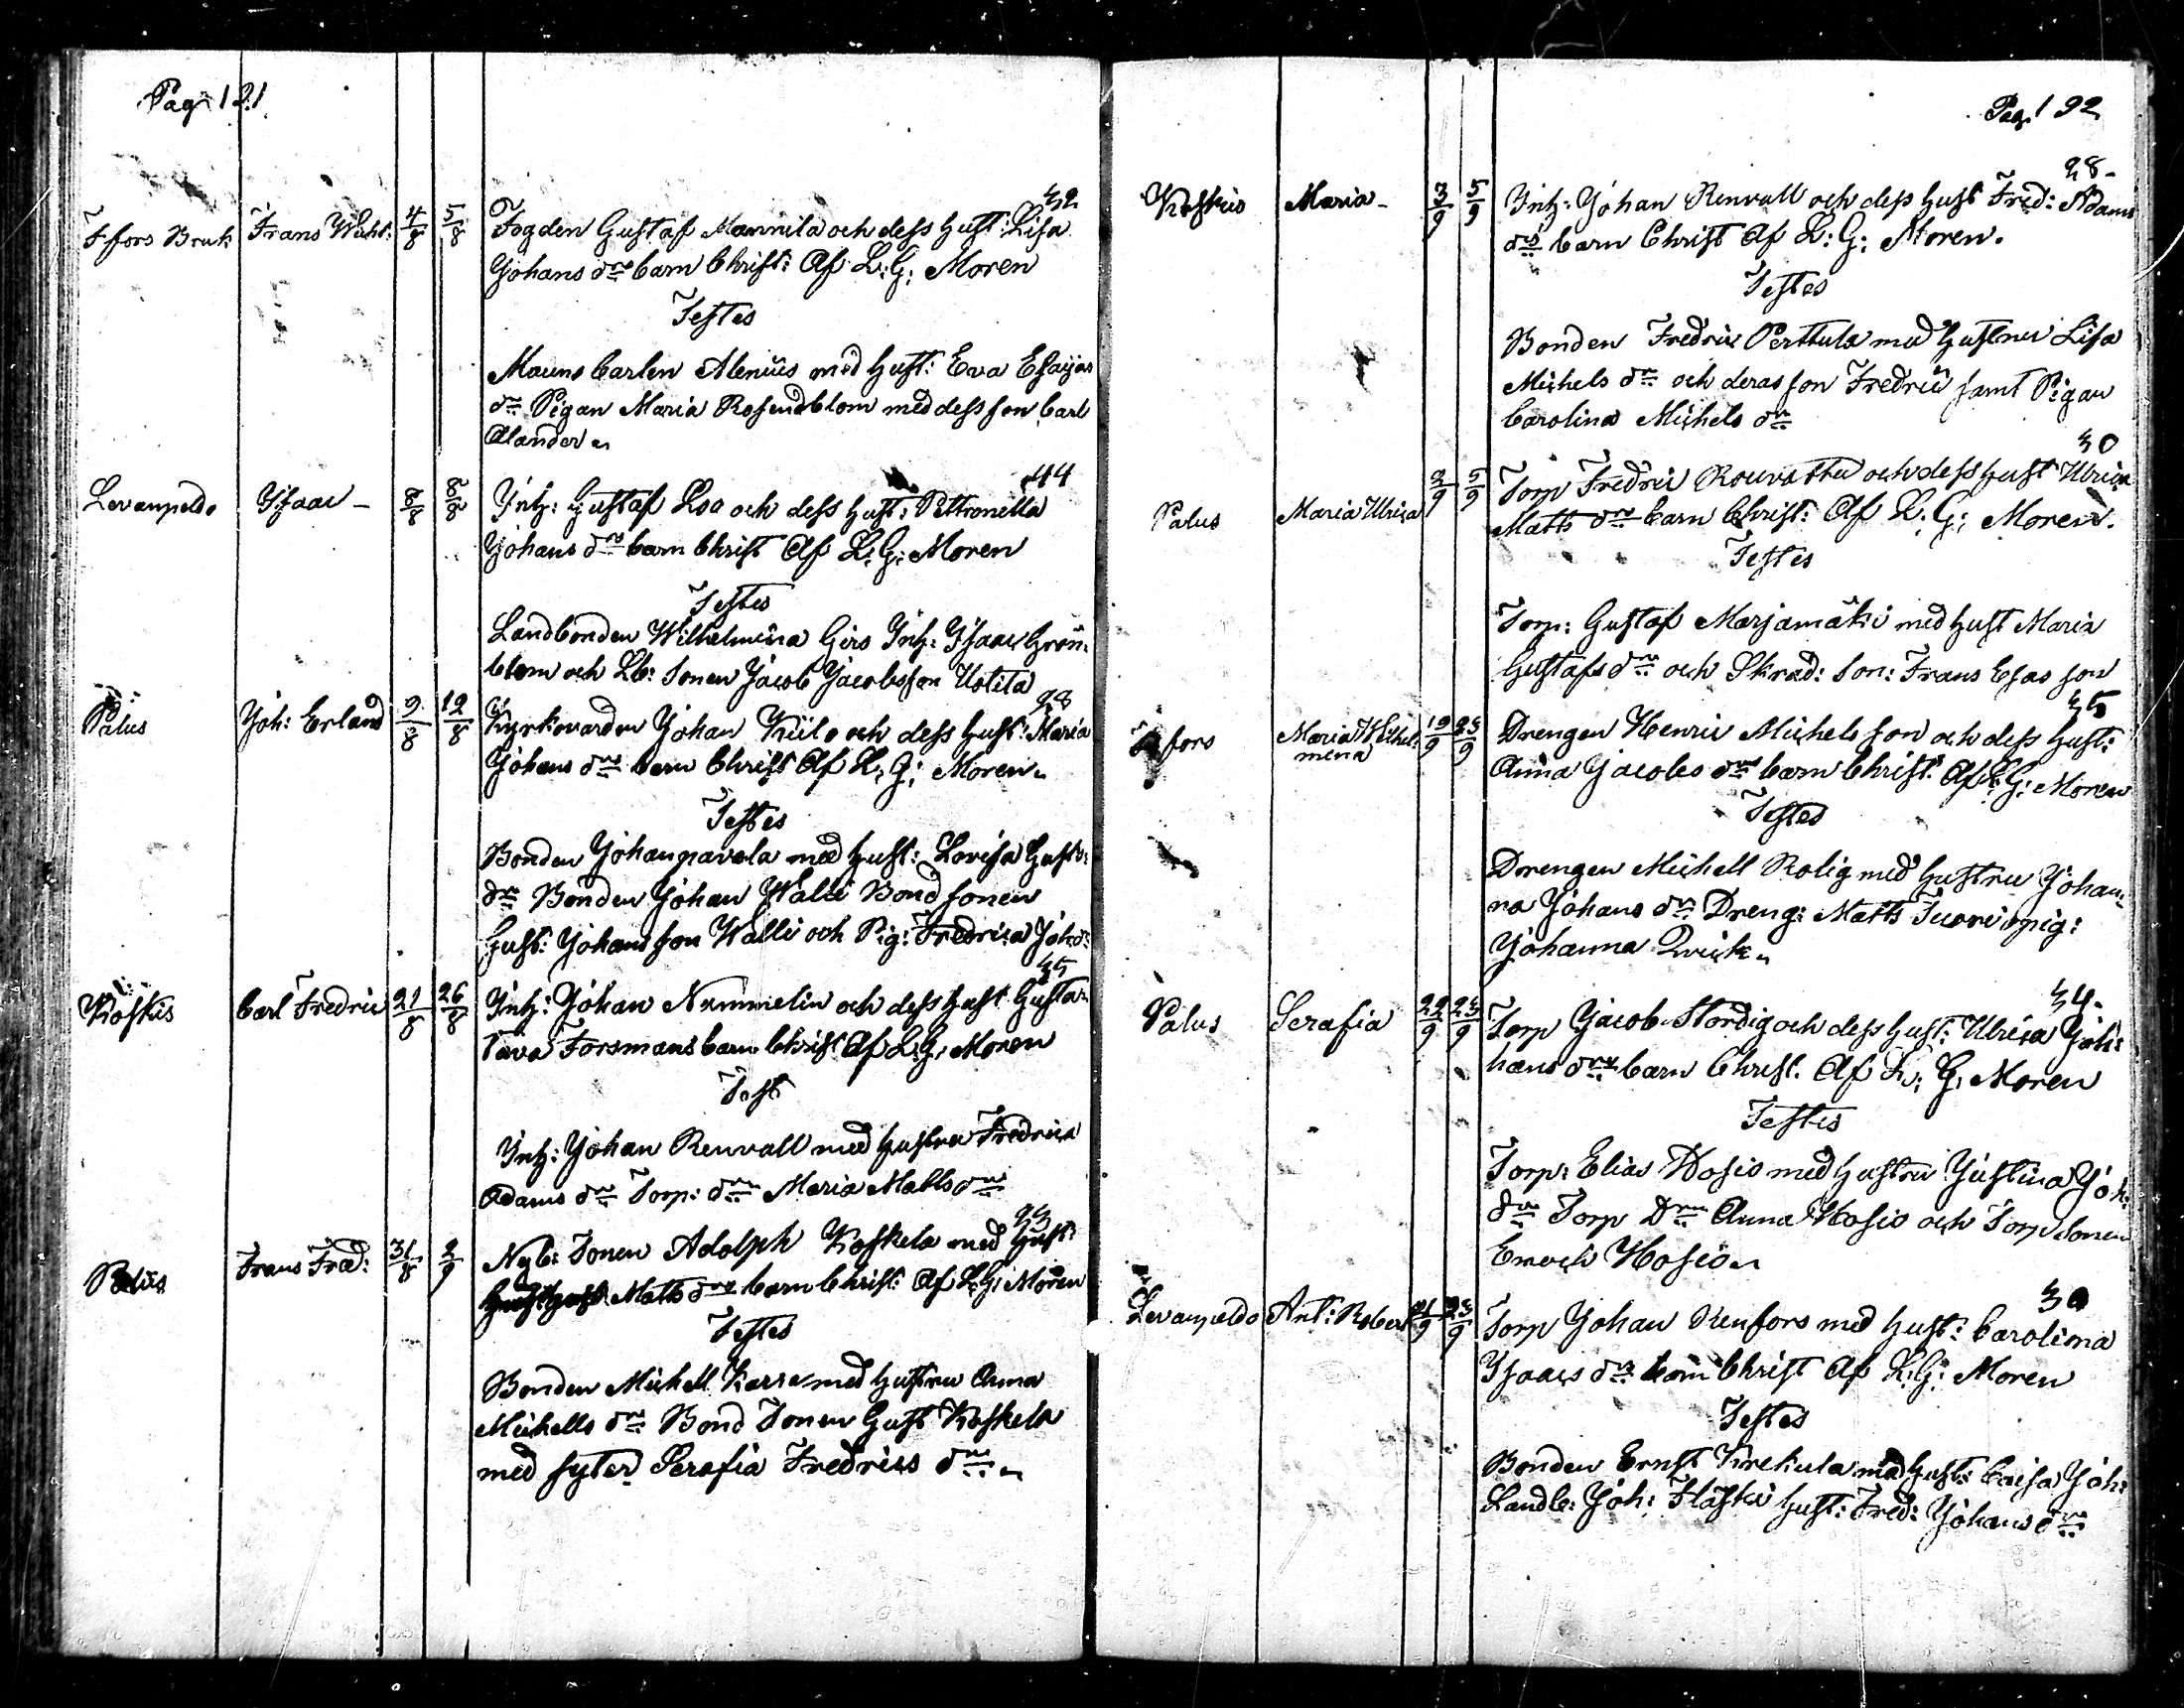 Pag 121
Ffors Bruk Frans Wilh: 4/8 5/8 Fogden Gustaf Mannila och dess Hust: Lisa 32
Johans drs barn Christ: Af L: G: Moren
Testes
Mauns Carlen Alenius med Hust: Eva Esaijas
dr Pigan Maria Rosendblom med dess son Carl
Alander
Levanpeldo Isaac - 6/8 8/8 Inh: Gustaf Loa och dess Hust: Pettronella 44
Johans drs barn Christ Af L: G: Moren
Testes
Landbonden Wilhelmina Girs Inh: Isaac Grön-
blom och Lb: Sonen Jacob Jacobsson Uotila
Palus Joh: Erland 9/8 12/8 Kyrkovarden Johan Kiilo och dess Hust: Maria 28
Johans drs barn Christ Af L: G: Moren
Testes
Bonden Johan pavola med Hust: Lovisa Gust:
dr Bonden Johan Walli Bond sonen
Gust: Johans son Walli och Pig: Fredrica Joh d:
Koskis Carl Fredric 21/8 26/8 Inh: Johan Nummelin och dess Hust Gusta- 35
tava Forsmans barn Christ Af L: G: Moren
Test
Inh: Johan Renvall med Hustru Fredrica
Adams dr Torp: dr Maria Matts dr
Palus Frans Fred: 31/8 2/9 Nyb: Sonen Adolph Koskela med Hust: 23
Matts drs barn Christ: Af L: G: Moren
Testes
Bonden Michell Karra med Hustru Anna
Michells dr Bond Sonen Gust Koskela
med syter Serafia Fredrics dr
Pag. 122
Koskis Maria - 3/9 5/9 Inh: Johan Renvall och dess Hust Fred: Adams 28-
drs barn Christ Af L: G: Moren.
Testes
Bonden Fredric Perttula med Hustru Lisa
Michels dr och deras son Fredric samt Pigan
Carolina Michels dr
Palus Maria Ulrica 2/9 5/9 Torp Fredric Rouvattu och dess Hust Ulrica 30
Matts drs barn Christ: Af L: G: Moren.
Testes
Torp: Gustaf Marjamäki med Hust Maria
Gustafs dr och Skrad: Son: Frans Esas son
Ffors Maria Wilhel- 19/9 23/9 Drengen Henric Michels son och dess Hust: 35
mina Anna Jacobs drs barn Christ: Af L: G: Moren
Testes
Drengen Michell Rolig med Hustru Johan-
na Johans dr Dreng: Matts Tuori o pig:
Johanna Qvick
Palus Serafia 22/9 23/9 Torp Jacob Stordig och dess Hust: Ulrica Joh: 34.
hans drs barn Christ. Af L: G: Moren
Testes
Torp: Elias Hosio med Hustru Justina Joh:
dr Torp Dr Anna Hosio och Torp Sonen
Enoch Hosio
Levanpeldo Ant: Robert 21/9 23/9 Torp Johan Renfors med Hust: Carolina 30
Isaacs dr barn Christ Af L: G: Moren
Testes
Bonden Ernst Kirekula med Hust: Caisa Joh:
Landb: Joh: Flaskä Hust: Fred: Johans dr